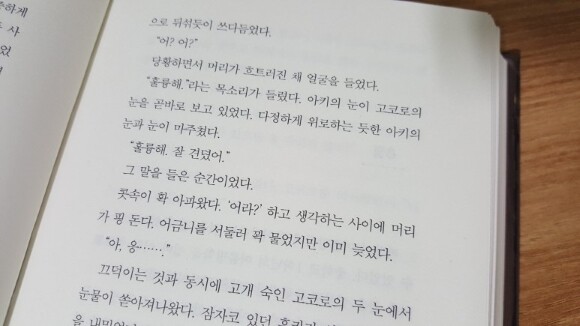 하게
사
었
으로 뒤섞듯이 쓰다듬었다.
"어? 어?"
당황하면서 머리가 흐트러진 채 얼굴을 들었다.
"훌륭해."라는 목소리가 들렸다. 아키의 눈이 고코로의
눈을 곧바로 보고 있었다. 다정하게 위로하는 듯한 아키의
눈과 눈이 마주쳤다.
"훌륭해. 잘 견뎠어."
그 말을 들은 순간이었다.
콧속이 확 아파왔다. '어라?' 하고 생각하는 사이에 머리
가 핑 돈다. 어금니를 서둘러 꽉 물었지만 이미 늦었다.
"아, 응……."
끄덕이는 것과 동시에 고개 숙인 고코로의 두 눈에서
눈물이 쏟아져나왔다. 잠자코 있던
을